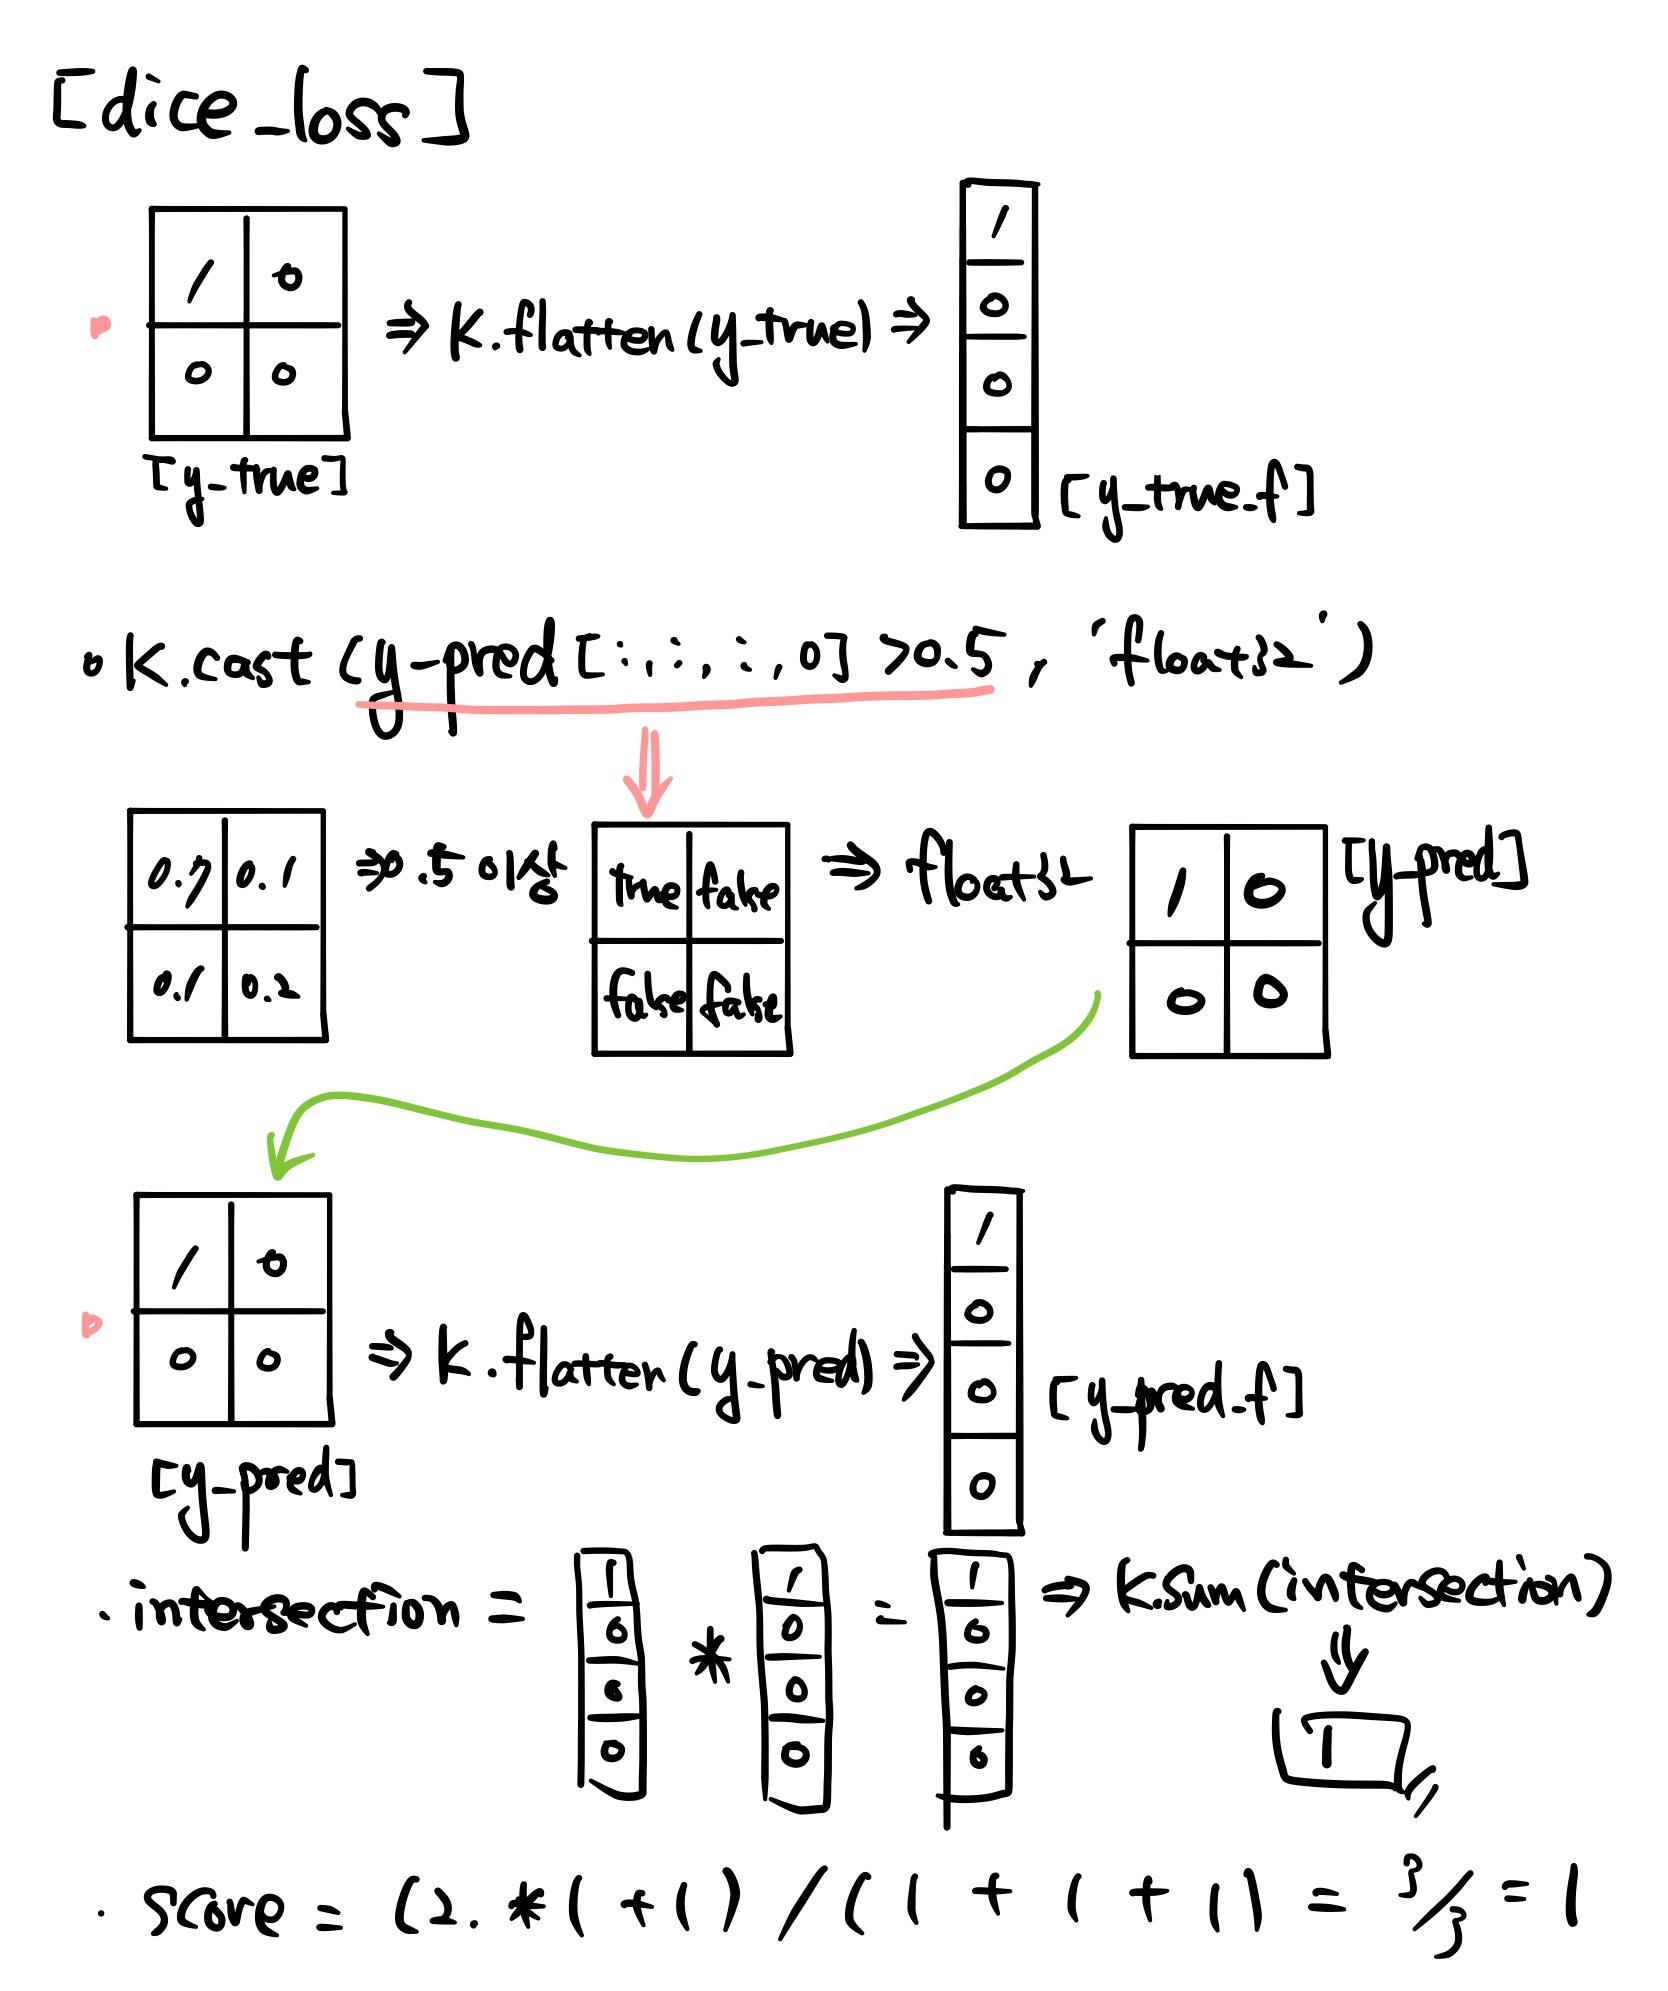 [dice_loss]
1 0
0 0
[y_true]
⇒ K.flatten(y_true) ⇒
1
0
0
0
[y_true_f]
K.cast(y_pred[:,:,:,0]>0.5, 'float32')
0.7 0.1
0.1 0.2
⇒0.5 이상
true false
false false
⇒ float32
1 0
0 0
[y_pred]
1 0
0 0
[y_pred]
⇒ K.flatten(y_pred) ⇒
1
0
0
0
[y_pred_f]
· intersection =
1
0
0
0
*
1
0
0
0
=
1
0
0
0
⇒ K.sum(intersection)
⇓
1
· score = (2. * 1 + 1) / (1 + 1 + 1) = 3/3 = 1